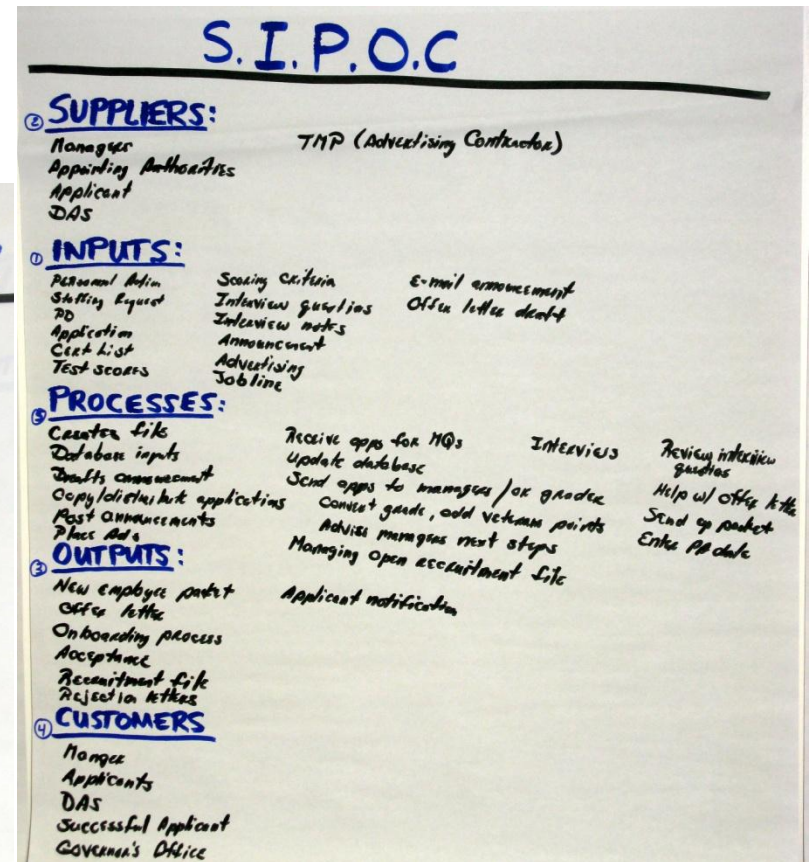 S.I.P.O.C
② SUPPLIERS:
Managers
Appointing Authorities
Applicant
DAS
TMP (Advertising Contractor)
① INPUTS:
Personnel Action
Staffing Request
PD
Application
Cert List
Test scores
Scoring Criteria
Interview questions
Interview notes
Announcement
Advertising
Jobline
E-mail announcement
Offer letter draft
⑤ PROCESSES:
Creates file
Database inputs
Drafts announcement
Copy/distribute applications
Post announcements
Place Ads
Receive apps for MQs
Update database
Send apps to managers/or grader
Convert grade, add veterans points
Advise managers next steps
Managing open recruitment file
Interviews
Review interview
questions
Help w/ offer letter
Send up packet
Enter PA date
③ OUTPUTS:
New employee packet
Offer letter
Onboarding process
Acceptance
Recruitment file
Rejection letters
Applicant notification
④ CUSTOMERS
Manger
Applicants
DAS
Successful Applicant
Governor's Office